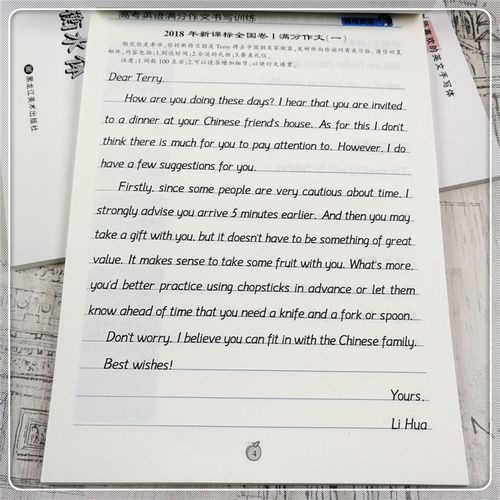 高考英语满分作文书写训练
2018 年新课标全国卷 I 满分作文(一)
假定你是李华,你的新西兰朋友 Terry 将去中国朋友家做客,发邮件向你询问有关习俗。请你回复
邮件,内容包括:1.到达时间;2.合适的礼物;3.餐桌礼仪。
注意:1.词数 100 左右;2.可以适当增加细节,以使行文连贯。
Dear Terry,
How are you doing these days? I hear that you are invited
to a dinner at your Chinese friend's house. As for this I don't
think there is much for you to pay attention to. However, I do
have a few suggestions for you.
Firstly, since some people are very cautious about time, I
strongly advise you arrive 5 minutes earlier. And then you may
take a gift with you, but it doesn't have to be something of great
value. It makes sense to take some fruit with you. What's more,
you'd better practice using chopsticks in advance or let them
know ahead of time that you need a knife and a fork or spoon.
Don't worry. I believe you can fit in with the Chinese family.
Best wishes!
Yours,
Li Hua
4
衡水体
黑龙江美术出版社
喜欢的英文手写体